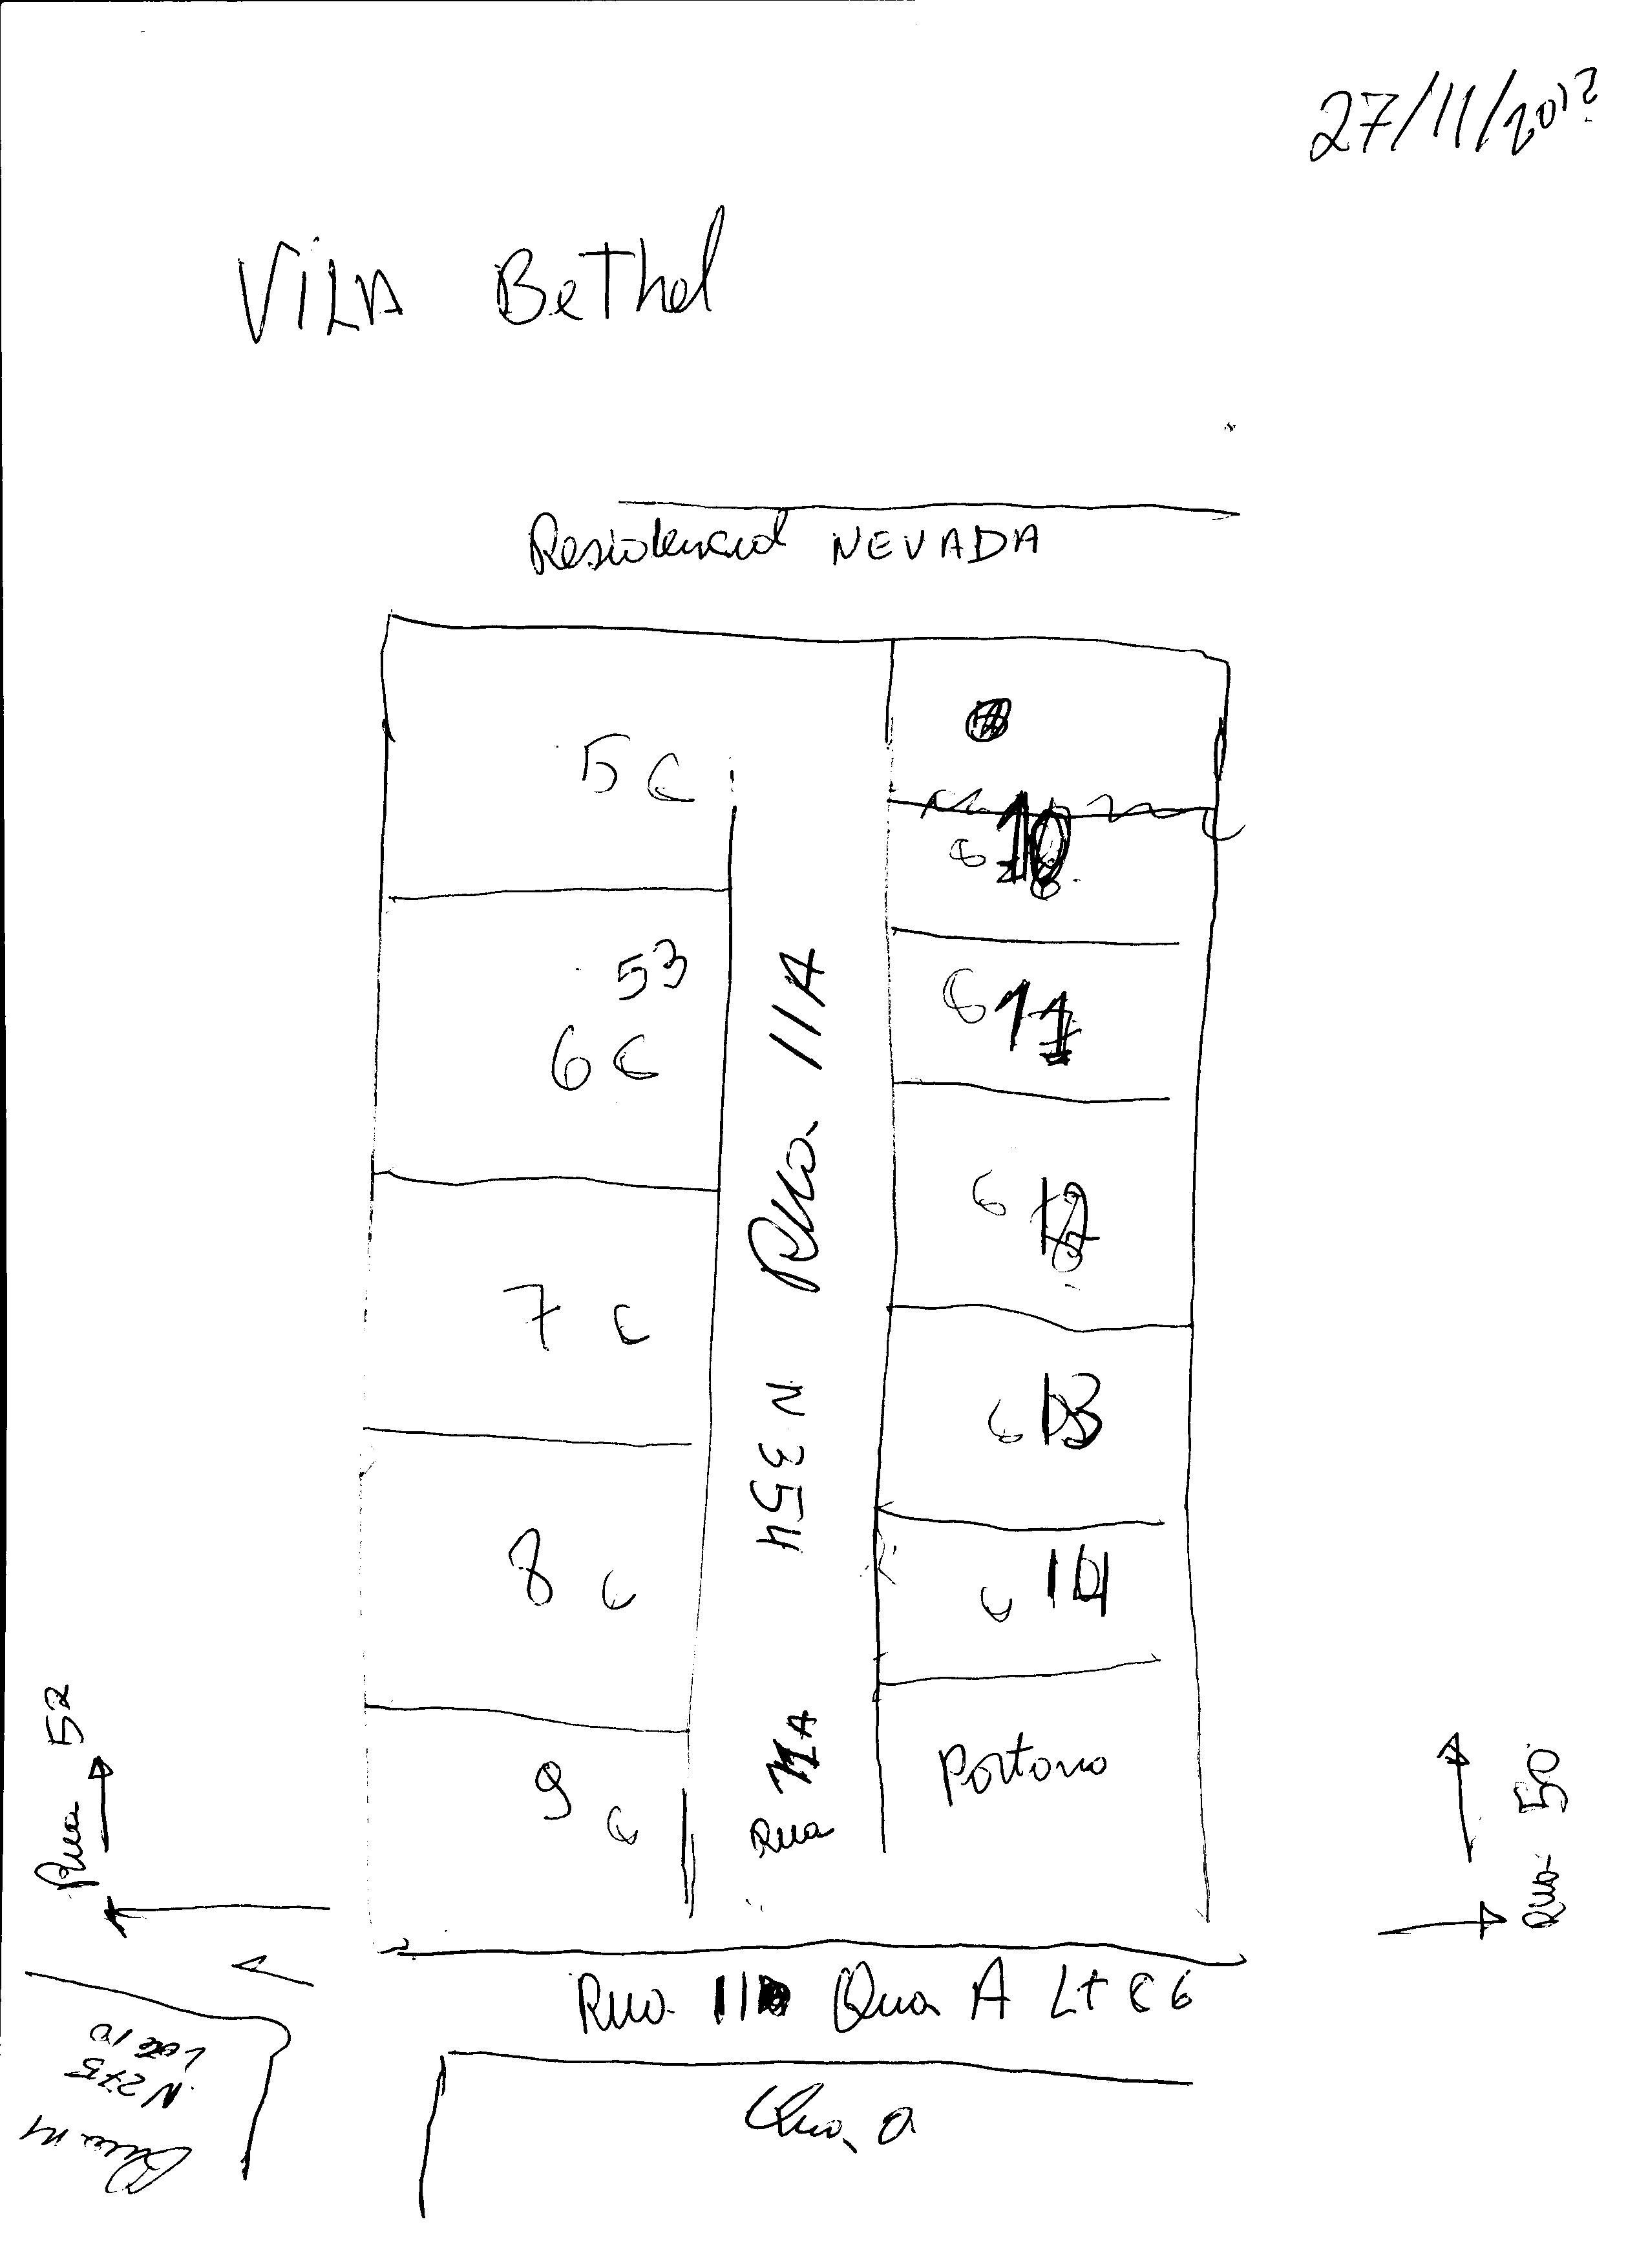 27/11/2012
VILA BeThel
Residencial NEVADA
5 C
10
53
6 C
6 11
Rua 11A
6 12
7 C
N 354
6 13
8 C
14
Rua 52
9 C
Rua 11A
Portão
Rua 50
Rua 11 Qua A Lt 86
Lote 10
N 275
Qua M
Qua. Q